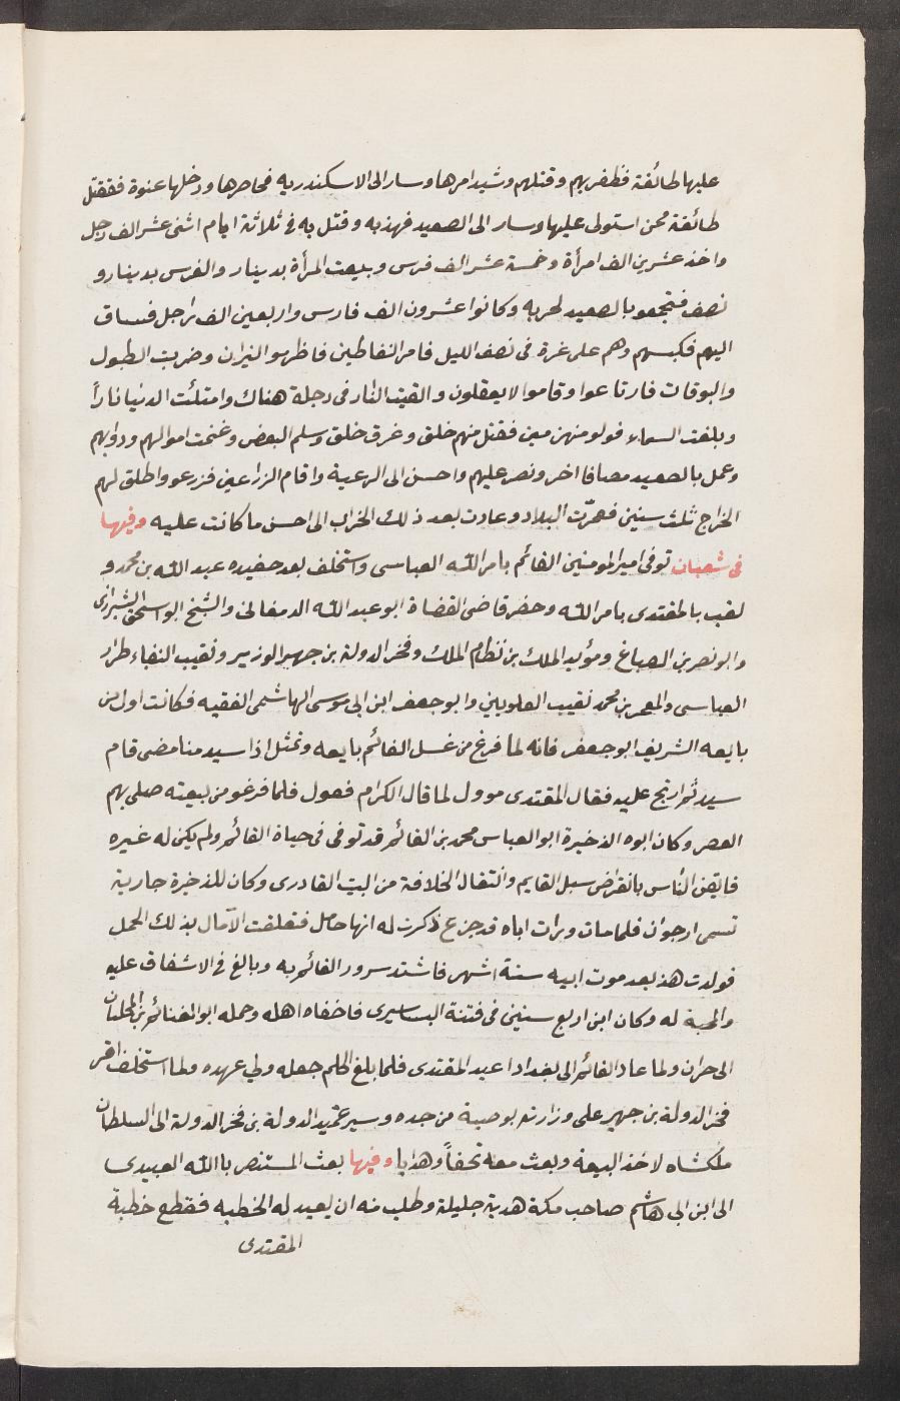 عليها طائفة فظفر بهم وقتلهم وشيد امرها وسار الى الاسكندريه فحاصرها ودخلها عنوة فقتل
طائفة ممن استولى عليها وسار الى الصعيد فهذبه وقتل به فى ثلاثة ايام اثنى عشر الف رجل
واخذ عشرين الف امرأة وخمسة عشر الف فرس وبيعت المرأة بدينار والفرس بدينار و
نصف فتجمعو بالصعيد لحربه وكانوا عشرون الف فارس واربعين الف راجل فساق
اليهم فكبسهم وهم على غرة فى نصف الليل فامر النفاطين فاظهرو النيران وضربت الطبول
والبوقات فارتاعوا وقاموا لا يعقلون والقيت النار فى دجلة هناك وامتلئت الدنيا ناراً
وبلغت السماء فولو منهزمين فقتل منهم خلق وغرق خلق وسلم البعض وغنمت اموالهم ودوابهم
وعمل بالصعيد مصافا اخر ونصر عليهم واحسن الى الرعية واقام الزراعين فزرعو واطلق لهم
الخراج ثلث سنين فعمرّت البلاد وعادت بعد ذلك الخراب الى احسن ما كانت عليه وفيها
فى شعبان توفى امير المومنين القائم بامر اللّه العباسى واستخلف بعد حفيده عبد اللّه بن محمد و
لقب بالمقتدى بامر اللّه وحضر قاضى القضاة ابو عبد اللّه الدمغانى والشيخ ابو اسحق الشيرازى
وابو نصر بن الصباغ ومؤيد الملك بن نظام الملك وفخر الدولة بن جهير الوزير ونقيب النقباء طراد
العباسى والمعمر بن محمد نقيب العلويين وابو جعفر ابن ابى موسى الهاشمى الفقيه فكانت اول من
بايعه الشريف ابو جعفر فانه لما فرغ من غسل القائم بايعه وتمثل اذا سيد منا مضى قام
سيد ثم ارتج عليه فقال المقتدى موول لما قال الكرام فعول فلما فرغو من بيعته صلى بهم
العصر وكان ابوه الذخيرة ابو العباس محمد بن القائم قد توفى فى حياة القائم ولم يكن له غيره
فايقن الناس بانقراض سبل القايم وانتقال الخلافة من البيت القادرى وكان للذخيرة جارية
تسمى ارجوان فلما مات ورات اباه قد جزع ذكرت له انها حامل فتعلقت الآمال بذلك الحمل
فولدت هذ بعد موت ابيه ستة اشهر فاشتد سرور القائم به وبالغ فى الاشفاق عليه
والمحبة له وكان ابن اربع سنين فى فتنة البساسيرى فاخفاه اهله وحمله ابو الغنائم بن المحلبان
الى حران ولما عاد القائم الى بغداد اعيد المقتدى فلما بلغ الحلم جعله ولي عهده ولما استخلف اقر
فخر الدولة بن جهير على وزارته بوصية من جده وسير عميد الدولة بن فخر الدولة الى السلطان
ملكشاه لاخذ البيعة وبعث معه تحفاً وهدايا وفيها بعث المستنصر با اللّه العبيدى
الى ابن ابى هاشم صاحب مكة هدية جليلة وطلب منه ان يعيد له الخطبه فقطع خطبة
المقتدى